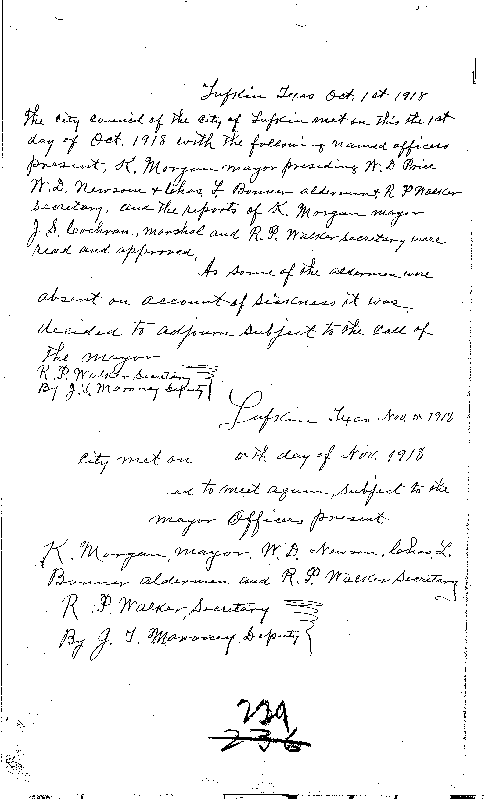 Lufkin Texas Oct. 1st 1918
The City Council of the City of Lufkin met on this the 1st
day of Oct. 1918 with the following named officers
present, K. Morgan mayor presiding W. D. Price
W. D. Newsom & Chas. L. Bonner aldermen & R. P. Walker
Secretary, and the reports of K. Morgan mayor
J. S. Cochran, Marshal and R. P. Walker Secretary were
read and approved.
As some of the aldermen were
absent on account of sickness it was
decided to adjourn subject to the call of
the mayor
R. P. Walker Secretary
By J. T. Maroney Deputy
Lufkin Texas Nov 1918
City met on day of Nov. 1918
ed to meet again, subject to the
mayor Officers present
K. Morgan, mayor, W. D. Newsom, Chas. L.
Bonner aldermen and R. P. Walker Secretary
R. P. Walker, Secretary
By J. T. Maroney Deputy
239
236